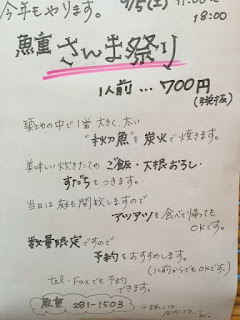 今年もやります。 9/5(土)
18:00
魚重 さんま祭り
1人前...700円
(税抜)
築地の中で1番大きく、太い
"秋刀魚"を炭火で焼きます。
美味しい炊きたての ご飯・大根おろし・
すだちもつきます。
当日は庭も開放しますので
アツアツを食べて帰っても
OKです。
数量限定ですので
予約をおすすめします。
(1人前からでもOKです。)
tel・Faxでも予約
できます。
魚重 281-1503